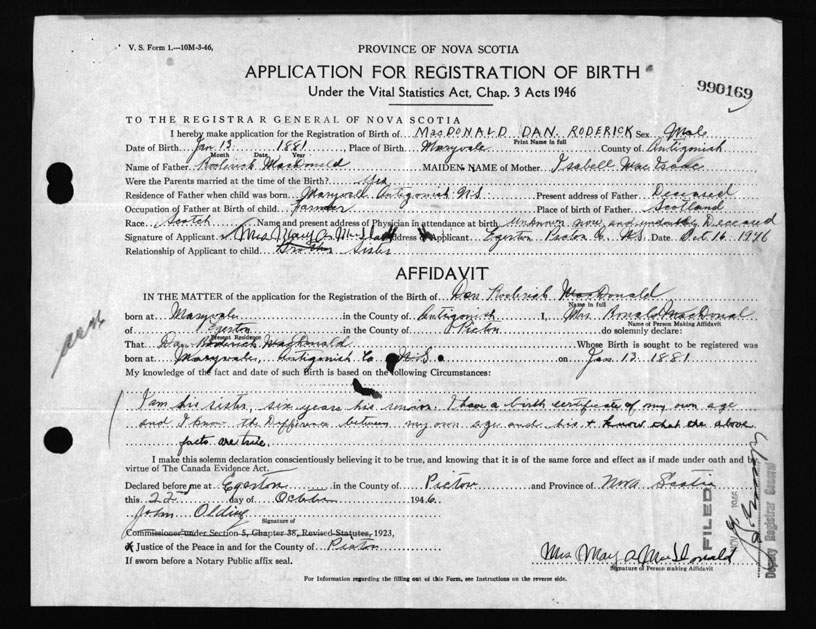 V. S. Form 1.—10M-3-46,
PROVINCE OF NOVA SCOTIA
APPLICATION FOR REGISTRATION OF BIRTH
Under the Vital Statistics Act, Chap. 3 Acts 1946
990169
TO THE REGISTRAR GENERAL OF NOVA SCOTIA
I hereby make application for the Registration of Birth of MacDONALD DAN. RODERICK Sex Male
Print Name in full
Date of Birth Jan 13 1881 Place of Birth Maryvale County of Antigonish
Month Date Year
Name of Father Roderick MacDonald MAIDEN NAME of Mother Isabell MacIsaac
Were the Parents married at the time of the Birth? Yes
Residence of Father when child was born Maryvale Antigonish N.S. Present address of Father Deceased
Occupation of Father at Birth of child farmer Place of birth of Father Scotland
Race Scotch Name and present address of Physician in attendance at birth unknown now and undoubtedly Deceased
Signature of Applicant Mrs Mary A. Address of Applicant Egerton Pictou Co N.S. Date Oct. 16 1946
Relationship of Applicant to child Brother Sister
AFFIDAVIT
IN THE MATTER of the application for the Registration of the Birth of Dan Roderick MacDonald
Name in full
born at Maryvale in the County of Antigonish I, Mrs Ronald MacDonald
Name of Person Making Affidavit
of Egerton in the County of Pictou do solemnly declare:
Present Residence
That Dan Roderick MacDonald Whose Birth is sought to be registered was
born at Maryvale, Antigonish Co. N.S. on Jan 13 1881
My knowledge of the fact and date of such Birth is based on the following Circumstances:
I am his sister, six years his senior. I have a birth certificate of my own age
and I know the Difference between my own age and his & know that the above
facts are true.
I make this solemn declaration conscientiously believing it to be true, and knowing that it is of the same force and effect as if made under oath and by
virtue of The Canada Evidence Act.
Declared before me at Egerton in the County of Pictou and Province of Nova Scotia
this 22nd day of October 1946.
John Olding
Signature of
Commissioner under Section 5, Chapter 38, Revised Statutes, 1923,
Justice of the Peace in and for the County of Pictou
If sworn before a Notary Public affix seal.
Mrs Mary A MacDonald
Signature of Person making Affidavit
For Information regarding the filling out of this Form, see Instructions on the reverse side.
FILED
NOV 1946
Deputy Registrar General